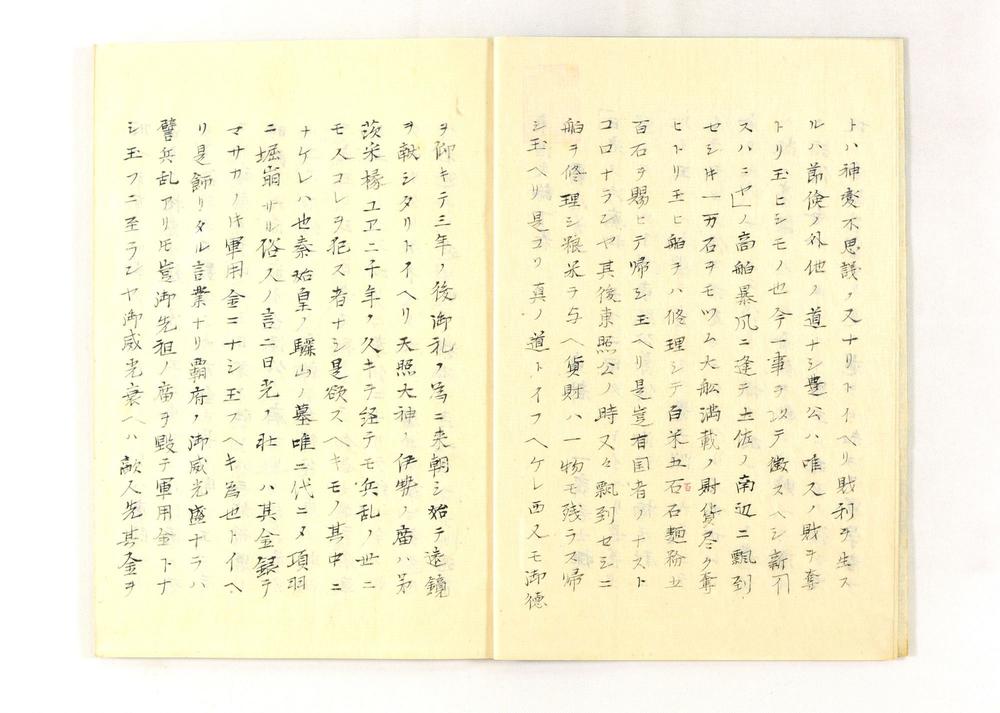 トハ神変不思議ノスナリトイヘリ財利ヲ生ス
ルハ節倹ノ外他ノ道ナシ豊公ハ唯人ノ財ヲ奪
トリ玉ヒシモノ也今一事ヲ以テ徴スヘシ新イ
スハニヤノ高舶暴風ニ逢テ土佐ノ南辺ニ飄到
セシ時一万石ヲモツム大舩満載ノ財貨尽ク奪
ヒトリ玉ヒ舶ヲハ修理シテ白米五百石麺粉五
百石ヲ賜ヒテ帰シ玉ヘリ是豈有国者ノナスト
コロナランヤ其後東照公ノ時又々飄到セシニ
舶ヲ修理シ粮米ヲ与ヘ貨財ハ一物モ残ラス帰
シ玉ヘリ是コリ真ノ道トイフヘケレ西人モ御徳
ヲ仰キテ三年ノ後御礼ノ為ニ来朝シ始テ遠鏡
ヲ献シタリトイヘリ天照大神ノ伊勢ノ廟ハ茅
茨米椽ユヱニ千年ノ久キヲ経テモ兵乱ノ世ニ
モスコレヲ犯ス者ナシ是欲スヘキモノ其中ニ
ナケレハ也秦始皇ノ驪山ノ墓唯二代ニメ項羽
ニ堀崩サル俗人ノ言ニ日光ノ壮ハ其金銀ヲ
マサカノ時軍用金ニナシ玉フヘキ為也トイヘ
リ是飾リタル言業ナリ覇府ノ御威光盛ナラハ
譬兵乱アリ𪜈豈御先祖ノ廟ヲ毀テ軍用金トナ
シ玉フニ至ランヤ御威光衰ヘハ敵人先其金ヲ